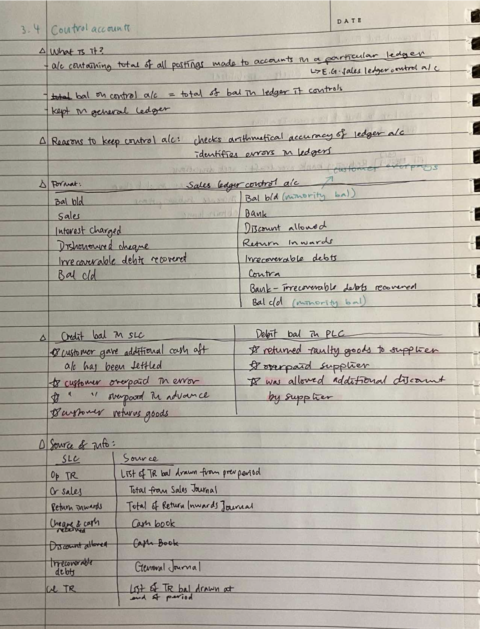 DATE
3.4 Control accounts
△ What is it?
- a/c containing total of all postings made to accounts in a particular ledger
↳ E.G. sales ledger control a/c
- total bal on control a/c = total of bal in ledger it controls
- kept in general ledger
△ Reasons to keep control a/c: checks arithmetical accuracy of ledger a/c
identifies errors in ledgers
customer overpays
△ Format: Sales ledger control a/c
Bal b/d Bal b/d (minority bal)
Sales Bank
Interest charged Discount allowed
Dishonoured cheque Return Inwards
Irrecoverable debts recovered Irrecoverable debts
Bal c/d Contra
Bank - irrecoverable debts recovered
Bal c/d (minority bal)
△ Credit bal in SLC Debit bal in PLC
☆ customer gave additional cash aft ☆ returned faulty goods to supplier
a/c has been settled ☆ overpaid supplier
☆ customer overpaid in error ☆ was allowed additional discount
☆ " " overpaid in advance by supplier
☆ customer returns goods
△ Source of info:
SLC Source
Op TR List of TR bal drawn from prev period
Cr sales Total from Sales Journal
Return inwards Total of Return Inwards Journal
Cheque & cash Cash book
Discount allowed Cash Book
Irrecoverable General Journal
debts
TR List of TR bal drawn at
end of period